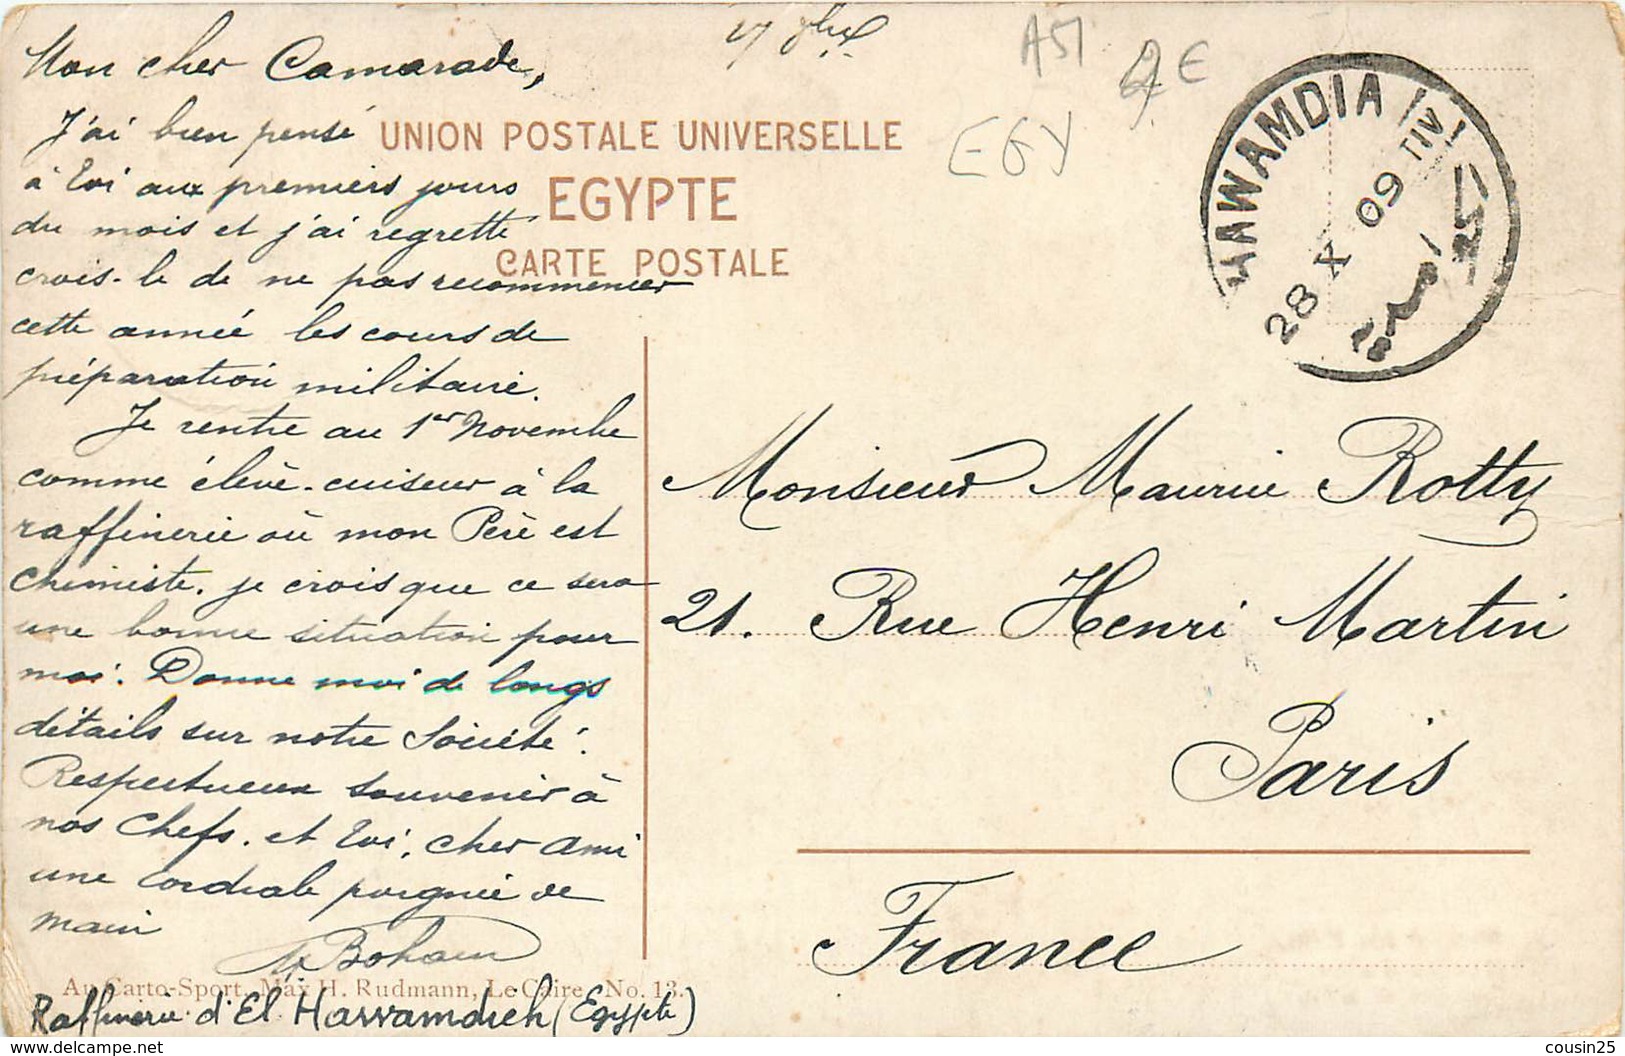 Mon cher Camarade,
J'ai bien pensé
à toi aux premiers jours
du mois et j'ai regretté
crois-le de ne pas recommencer
cette année les cours de
préparation militaire.
Je rentre au 1er Novembre
comme élève-cuiseur à la
raffinerie où mon Père est
chimiste. je crois que ce sera
une bonne situation pour
moi. Donne moi de longs
détails sur notre Société.
Respectueux souvenir à
nos Chefs. et toi, cher Ami
une cordiale poignée de
main
Bohain
Raffinerie d'El Hawamdieh (Egypte)
Au Carto-Sport, Max H. Rudmann, Le Caire, No. 13.
UNION POSTALE UNIVERSELLE
EGYPTE
CARTE POSTALE
A51
2€
EGY
HAWAMDIA
28 X 09 TIV
Monsieur Maurice Rotty
21. Rue Henri Martin
Paris
France
www.delcampe.net
cousin25